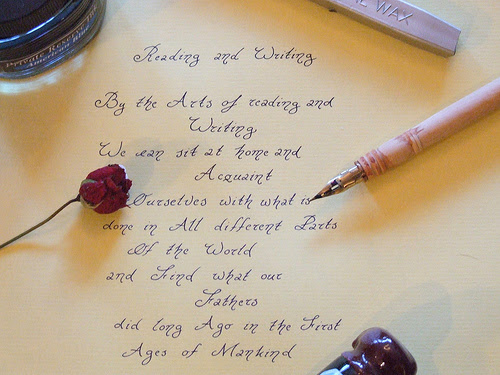 Private Reserve
American Blue
WAX
Reading and Writing
By the Arts of reading and
Writing
We can sit at home and
Acquaint
Ourselves with what is
done in All different Parts
Of the World
and Find what our
Fathers
did long Ago in the First
Ages of Mankind